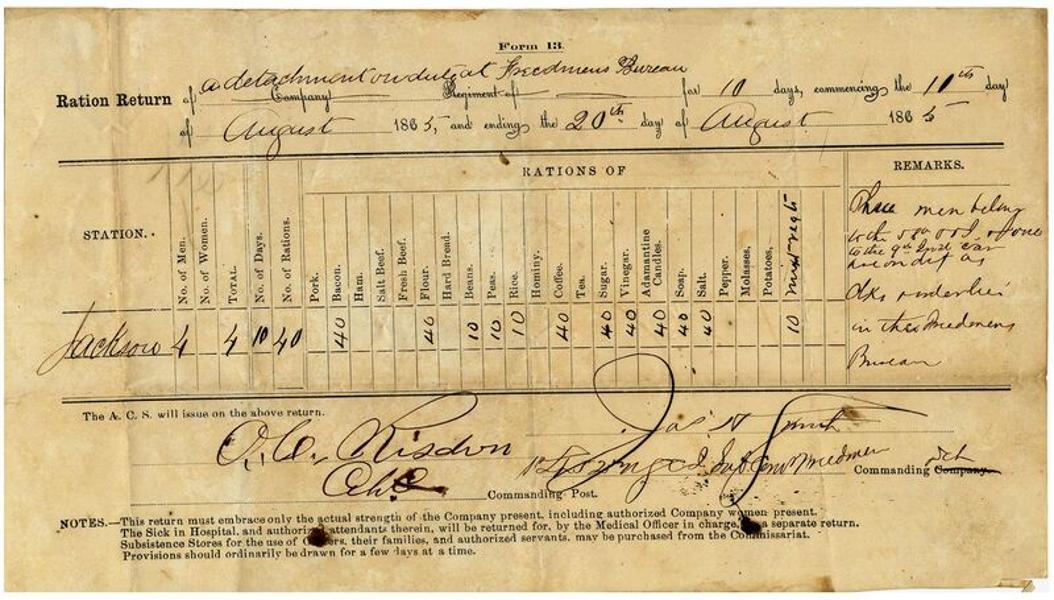 Form 13.
a detachment on duty at Freedmens Bureau
Ration Return of Company Regiment of for 10 days, commencing the 10th day
of August 1865, and ending the 20th day of August 1865
RATIONS OF
REMARKS.
STATION.
No. of Men.
No. of Women.
TOTAL.
No. of Days.
No. of Rations.
Pork.
Bacon.
Ham.
Salt Beef.
Fresh Beef.
Flour.
Hard Bread.
Beans.
Peas.
Rice.
Hominy.
Coffee.
Tea.
Sugar.
Vinegar.
Adamantine Candles.
Soap.
Salt.
Pepper.
Molasses,
Potatoes,
Jackson 4 4 10 40 40 40 10 10 10 40 40 40 40 40 40 10
men belong
to the
to the 9th
in the Freedmens
Bureau
The A. C. S. will issue on the above return.
O. C. Risdon
Jas H Smith
Commanding Post.
Freedmen Commanding Company. Det
NOTES.—This return must embrace only the actual strength of the Company present, including authorized Company women present.
The Sick in Hospital, and authorized attendants therein, will be returned for, by the Medical Officer in charge, on a separate return.
Subsistence Stores for the use of Officers, their families, and authorized servants, may be purchased from the Commissariat.
Provisions should ordinarily be drawn for a few days at a time.